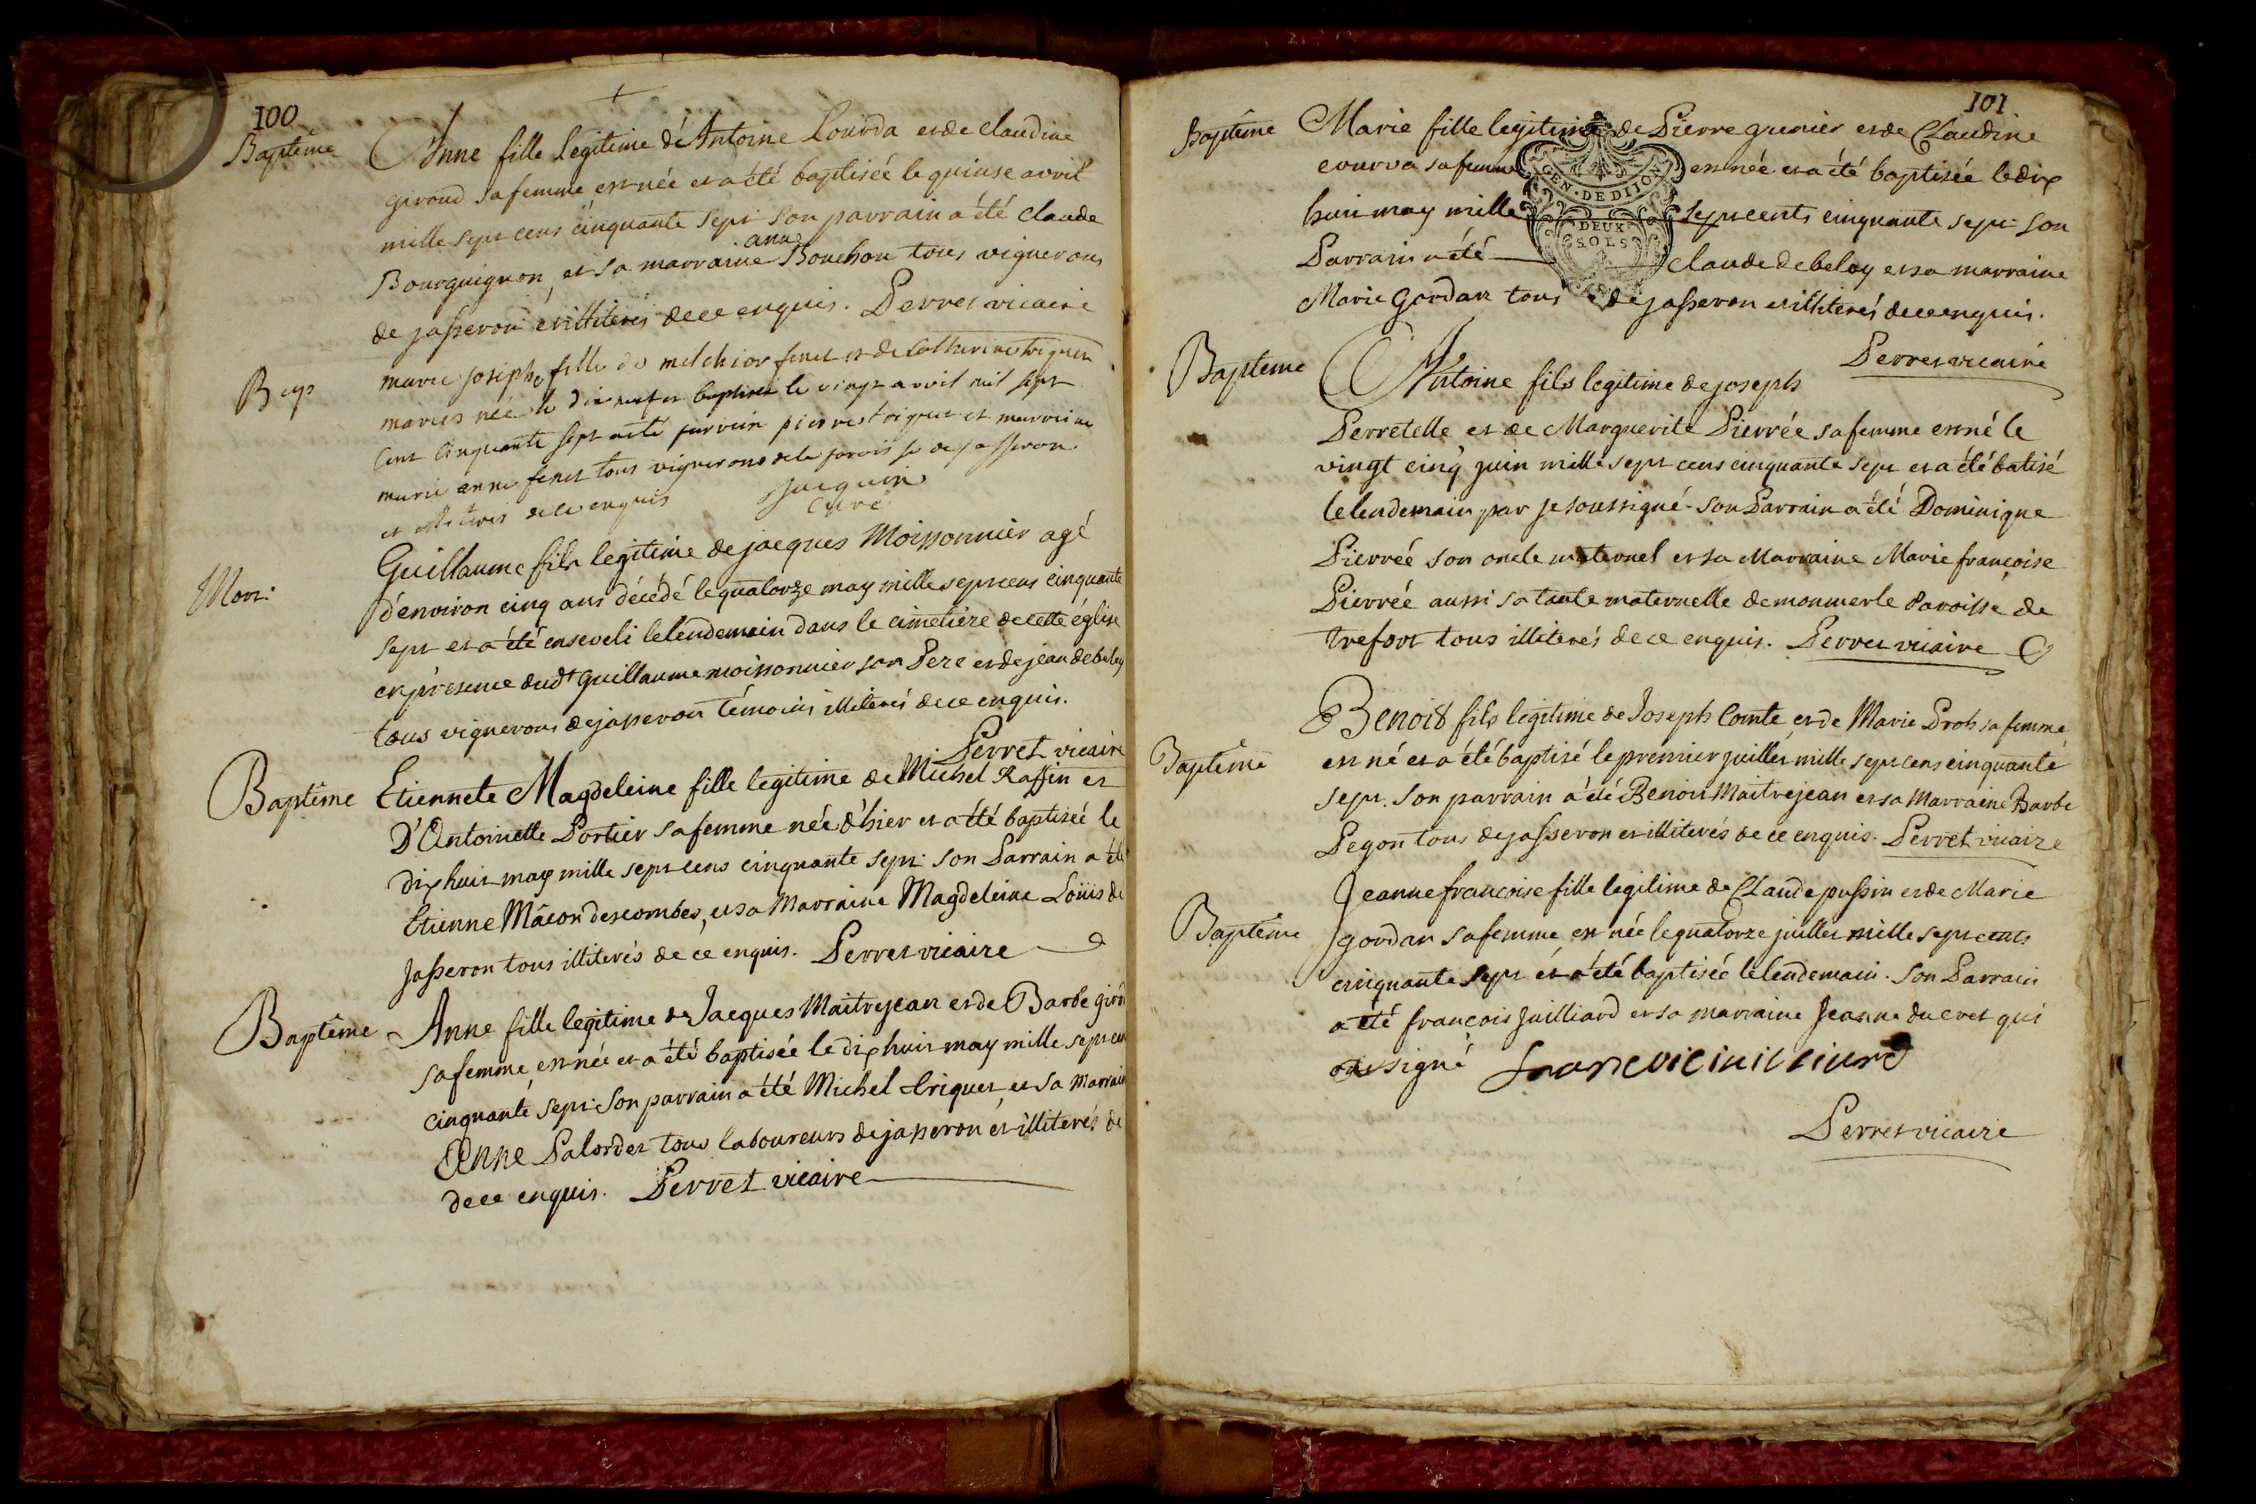 100
Baptême
Anne fille legitime de Antoine Lourda et de claudine
giroud sa femme est née et a été baptisée le quinse avril
mille sept cens cinquante sept son parrain a été claude
Bourguignon, et sa marraine anne Bouchon tous vignerons
de jasseron et illiterés de ce enquis. Perret vicaire
Bap
marie josephe fille de melchior feret et de Catherine
mariés née le dix neuf et baptisée le vingt avril mil sept
cent cinquante sept a été parrein pierre et marreine
marie anne feret tous vignerons de la paroisse de jasseron
et illiterés de ce enquis Jacquin
Curé
Mort.
Guillaume fils legitime de jacques Moissonnier agé
d'environ cinq ans décédé le quatorze may mille sept cens cinquante
sept et a été enseveli le lendemain dans le cimetière de cette église
en présence dudt Guillaume moissonnier son Pere et de jean debeley
tous vignerons de jasseron témoins illiterés de ce enquis.
Perret vicaire
Baptême
Etiennete Magdeleine fille legitime de Michel Raffin et
D'Antoinette Portier sa femme née d'hier et a été baptisée le
dix huit may mille sept cens cinquante sept. son Parrain a été
Etienne Mâcon descombes, et sa Marraine Magdeleine Loüis de
Jasseron tous illiterés de ce enquis. Perret vicaire
Baptême
Anne fille legitime de Jacques Maitrejean et de Barbe
sa femme, est née et a été baptisée le dix huit may mille sept cen
cinquante sept. son parrain a été Michel triquet, et sa Marrain
Anne Palordet tous laboureurs de jasseron et illiterés de
de ce enquis. Perret vicaire
101
Baptême
Marie fille legitime de Pierre grenier et de Claudine
courva sa femme est née et a été baptisée le dix
huit may mille sept cents cinquante sept. son
Parrain a été claude debeley et sa marraine
Marie Gordan tous de jasseron et illiterés de ce enquis.
Perret vicaire
GEN. DE DIJON
DEUX
SOLS
Bapteme
Antoine fils legitime de joseph
Perretelle et de Marguerite Pierrée sa femme est né le
vingt cinq juin mille sept cens cinquante sept et a été batisé
le lendemain par je soussigné. son Parrain a été Dominique
Pierrée son oncle maternel et sa Marraine Marie françoise
Pierrée aussi sa tante maternelle de monmerle Paroisse de
trefort tous illiterés de ce enquis. Perret vicaire
Baptême
Benoit fils legitime de Joseph Comte et de Marie Prost sa femme
est né et a été baptisé le premier juillet mille sept cens cinquante
sept. son parrain a été Benoit Maitrejean et sa Marraine Barbe
Pegon tous de jasseron et illiterés de ce enquis. Perret vicaire
Baptême
Jeanne françoise fille legitime de Claude pussin et de Marie
gordan sa femme est née le quatorze juillet mille sept cents
cinquante sept et a été baptisée le lendemain. son Parrain
a été françois juilliard et sa marraine Jeanne ducret qui
ont signé
Perret vicaire